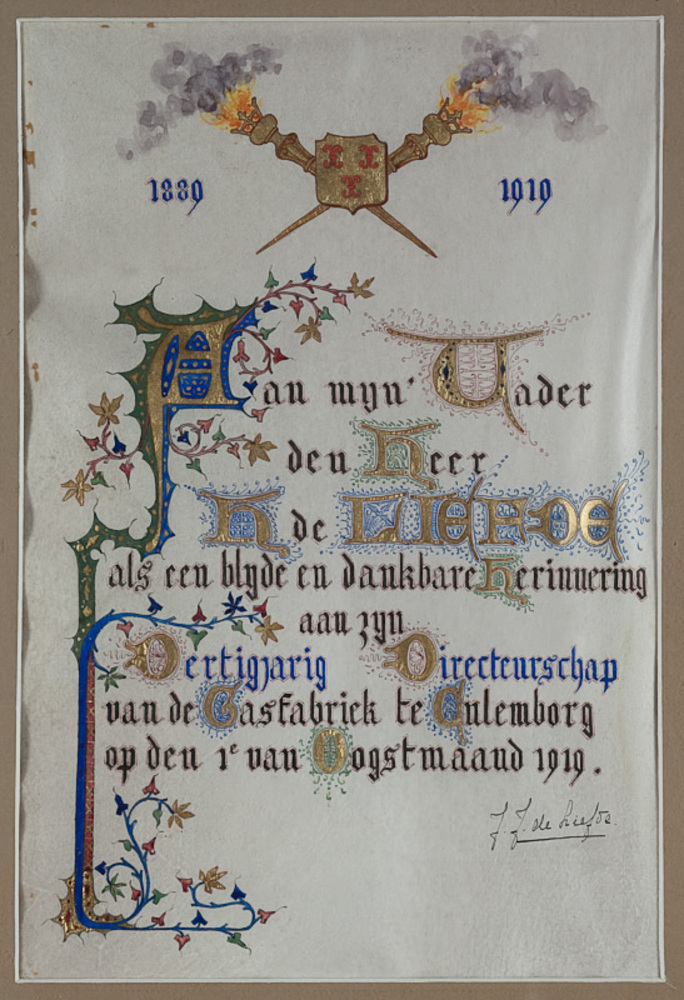 1889 1919
Aan myn' Vader
den Heer
H de LIEFDE
als een blyde en dankbare Herinnering
aan zyn
Dertigjarig Directeurschap
van de Gasfabriek te Culemborg
op den 1e van Oogstmaand 1919.
J. J. de Liefde.